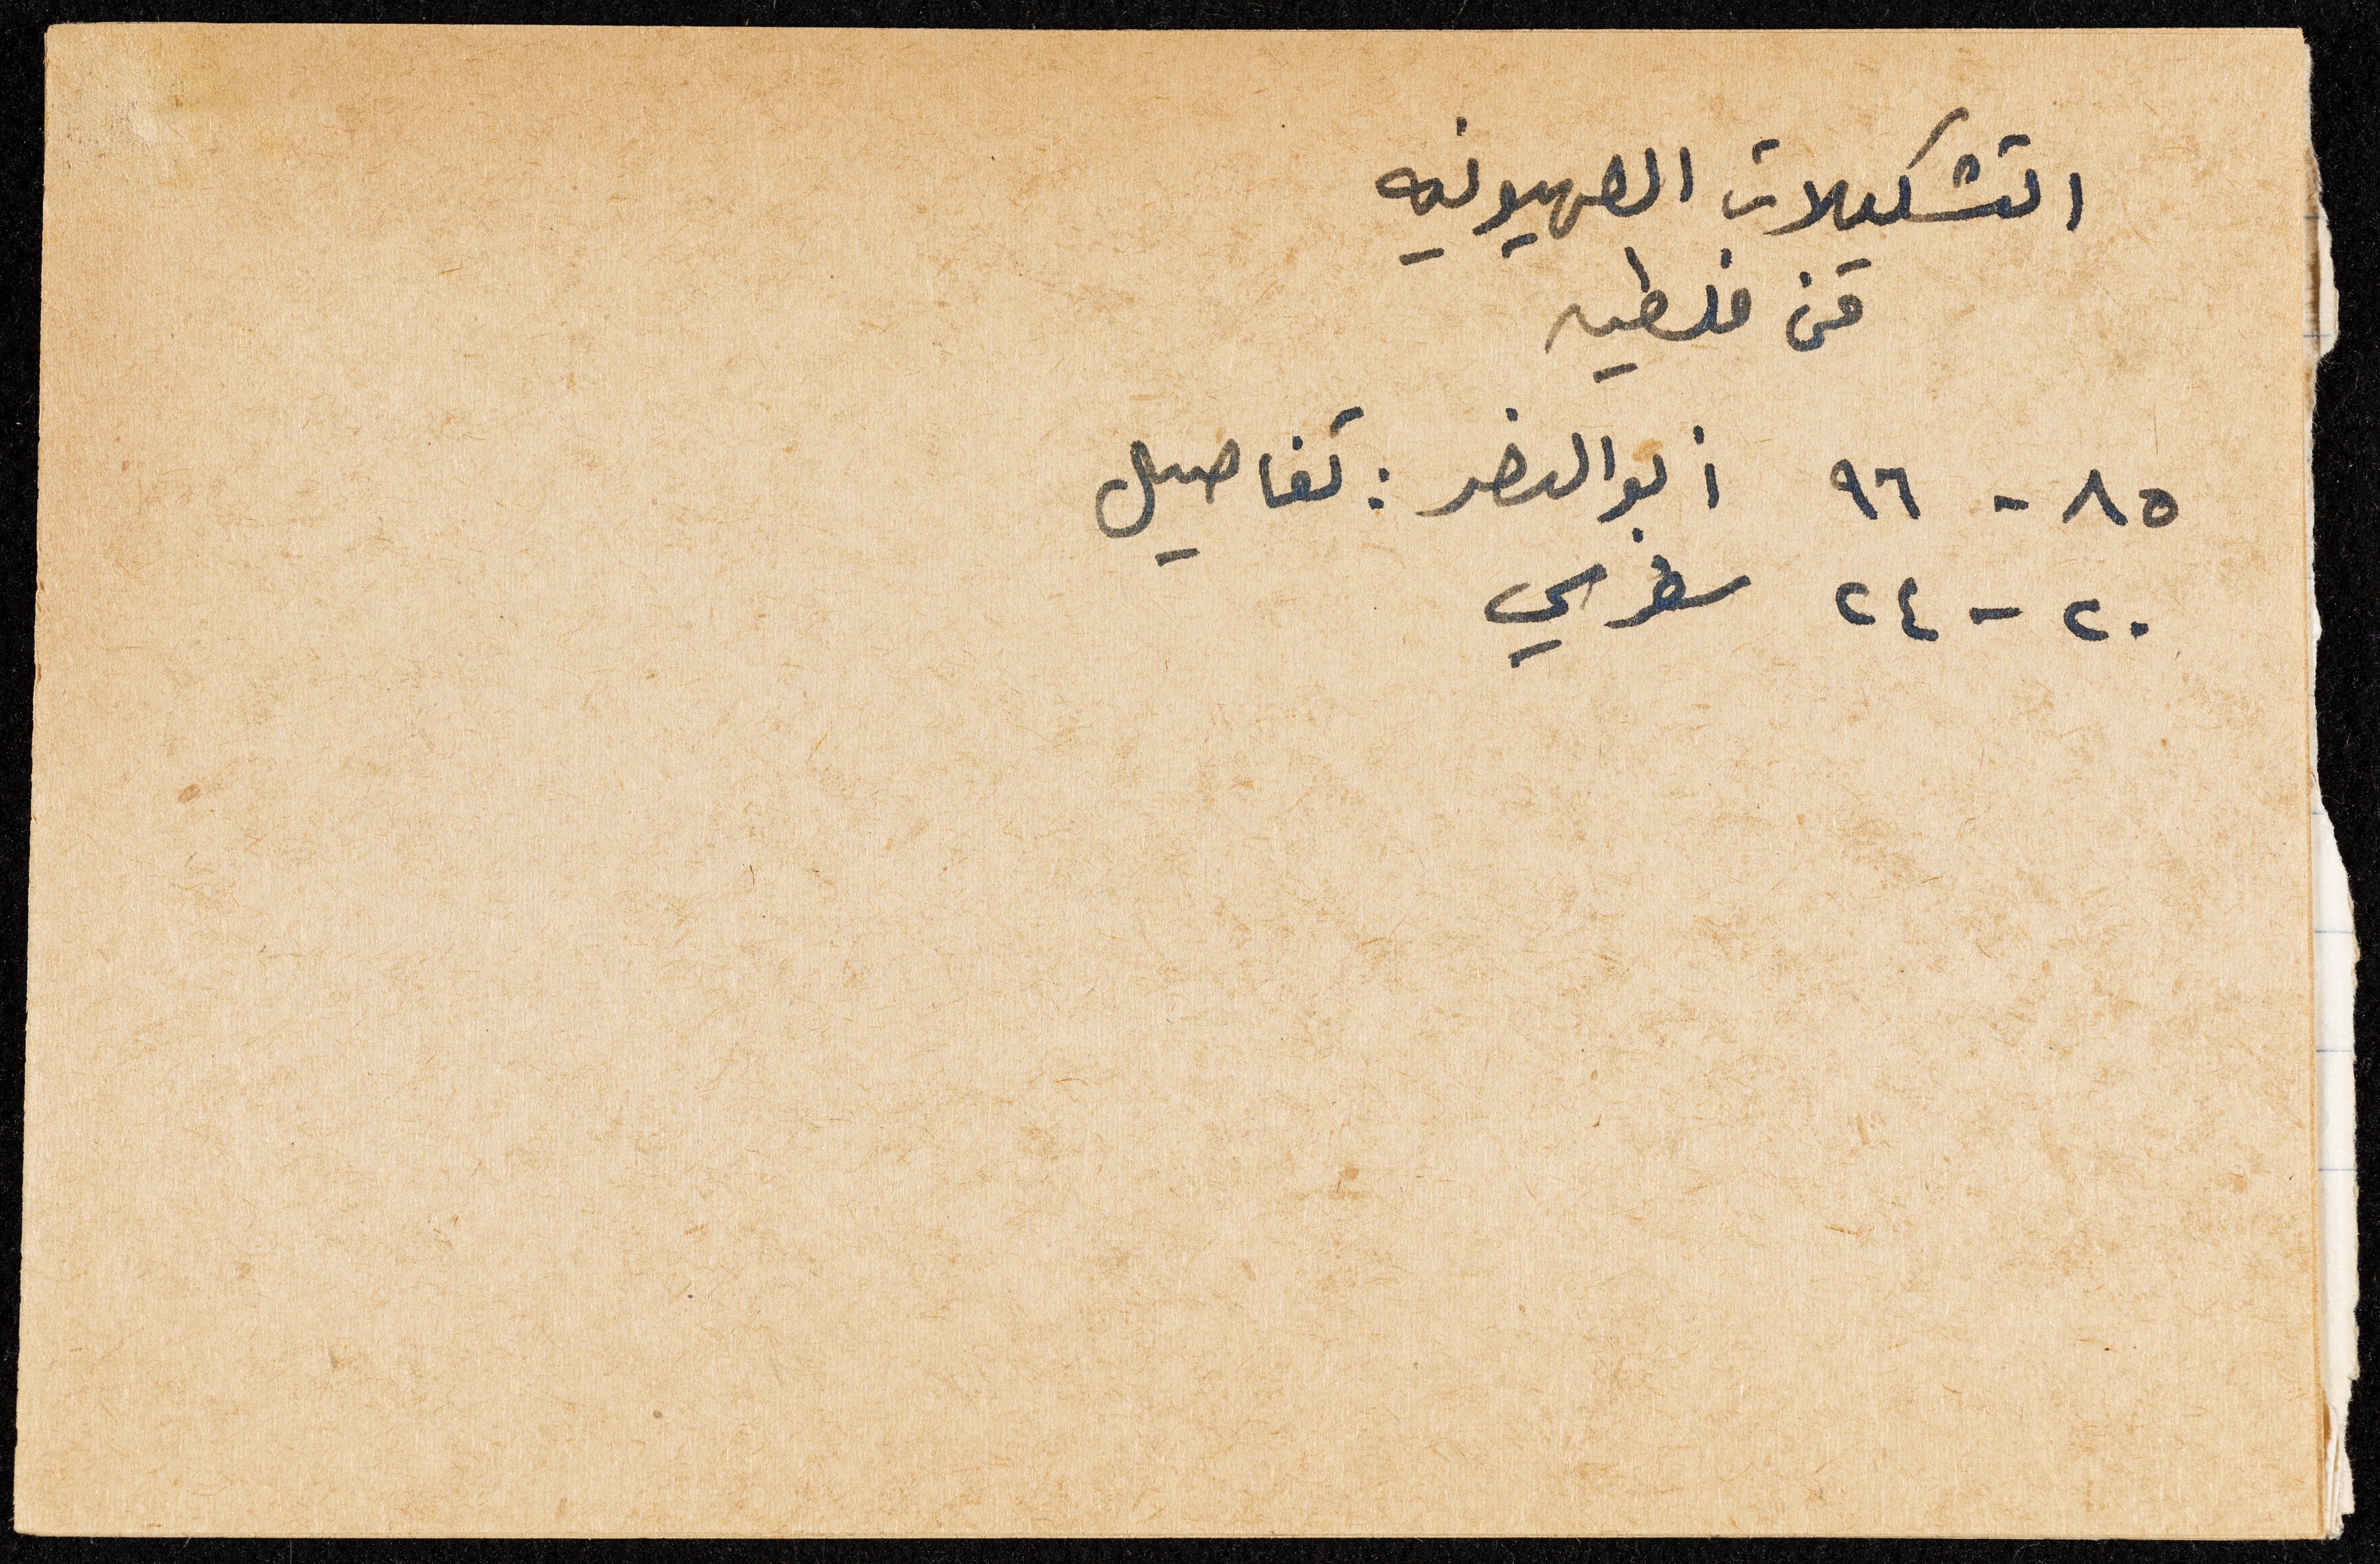 التشكيلات الصهيونيه
في فلسطين
٨٥ - ٩٦ أبو النضر : تفاصيل
٢٠ - ٢٤